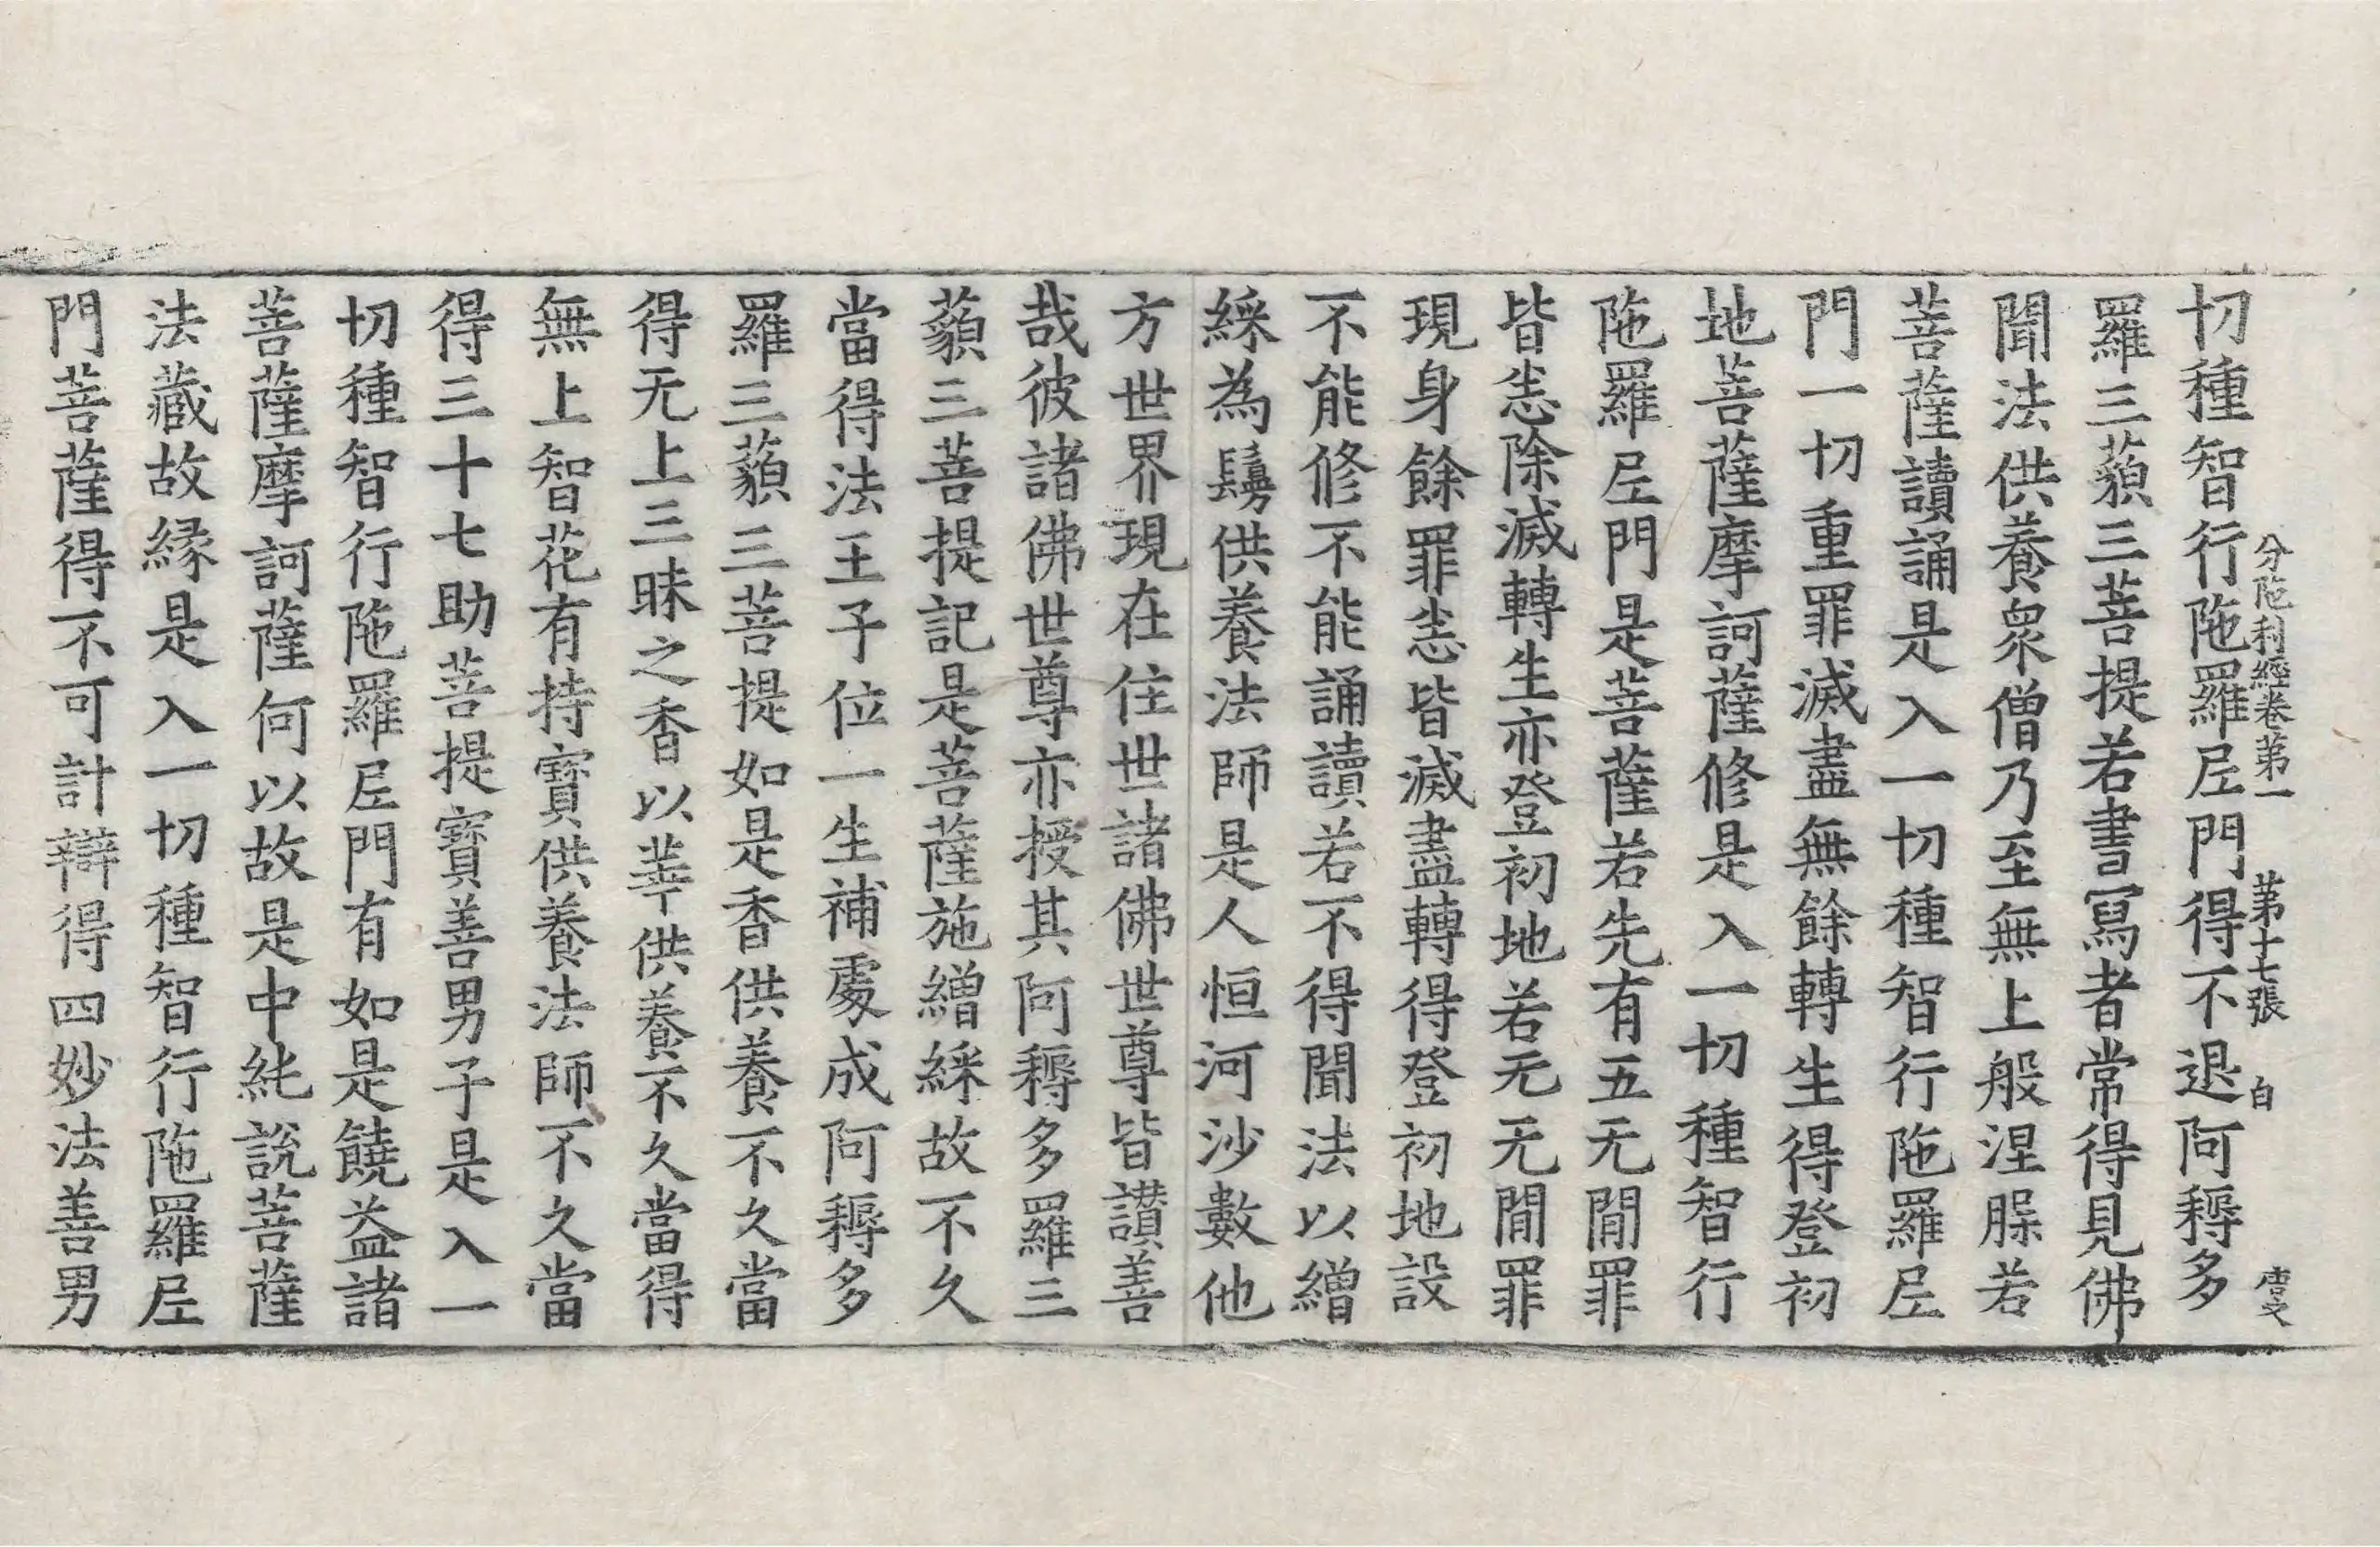 分陁利經卷第一　第十七張　白　
切種智行陁羅尼門得不退阿耨多
羅三藐三菩提若書寫者常得見佛
聞法供養衆僧乃至無上般涅槃若
菩薩讀誦是入一切種智行陁羅尼
門一切重罪滅盡無餘轉生得登初
地菩薩摩訶薩修是入一切種智行
陁羅尼門是菩薩若先有五无閒罪
皆悉除滅轉生亦登初地若无无閒罪
現身餘罪悉皆滅盡轉得登初地設
不能修不能誦讀若不得聞法以繒
綵為鬘供養法師是人恒河沙數他
方世界現在住世諸佛世尊皆讃善
哉彼諸佛世尊亦授其阿耨多羅三
藐三菩提記是菩薩施繒綵故不久
當得法王子位一生補處成阿耨多
羅三藐三菩提如是香供養不久當
得无上三昧之香以華供養不久當得
無上智花有持寶供養法師不久當
得三十七助菩提寶善男子是入一
切種智行陁羅尼門有如是饒益諸
菩薩摩訶薩何以故是中純説菩薩
法藏故緣是入一切種智行陁羅尼
門菩薩得不可計辯得四妙法善男